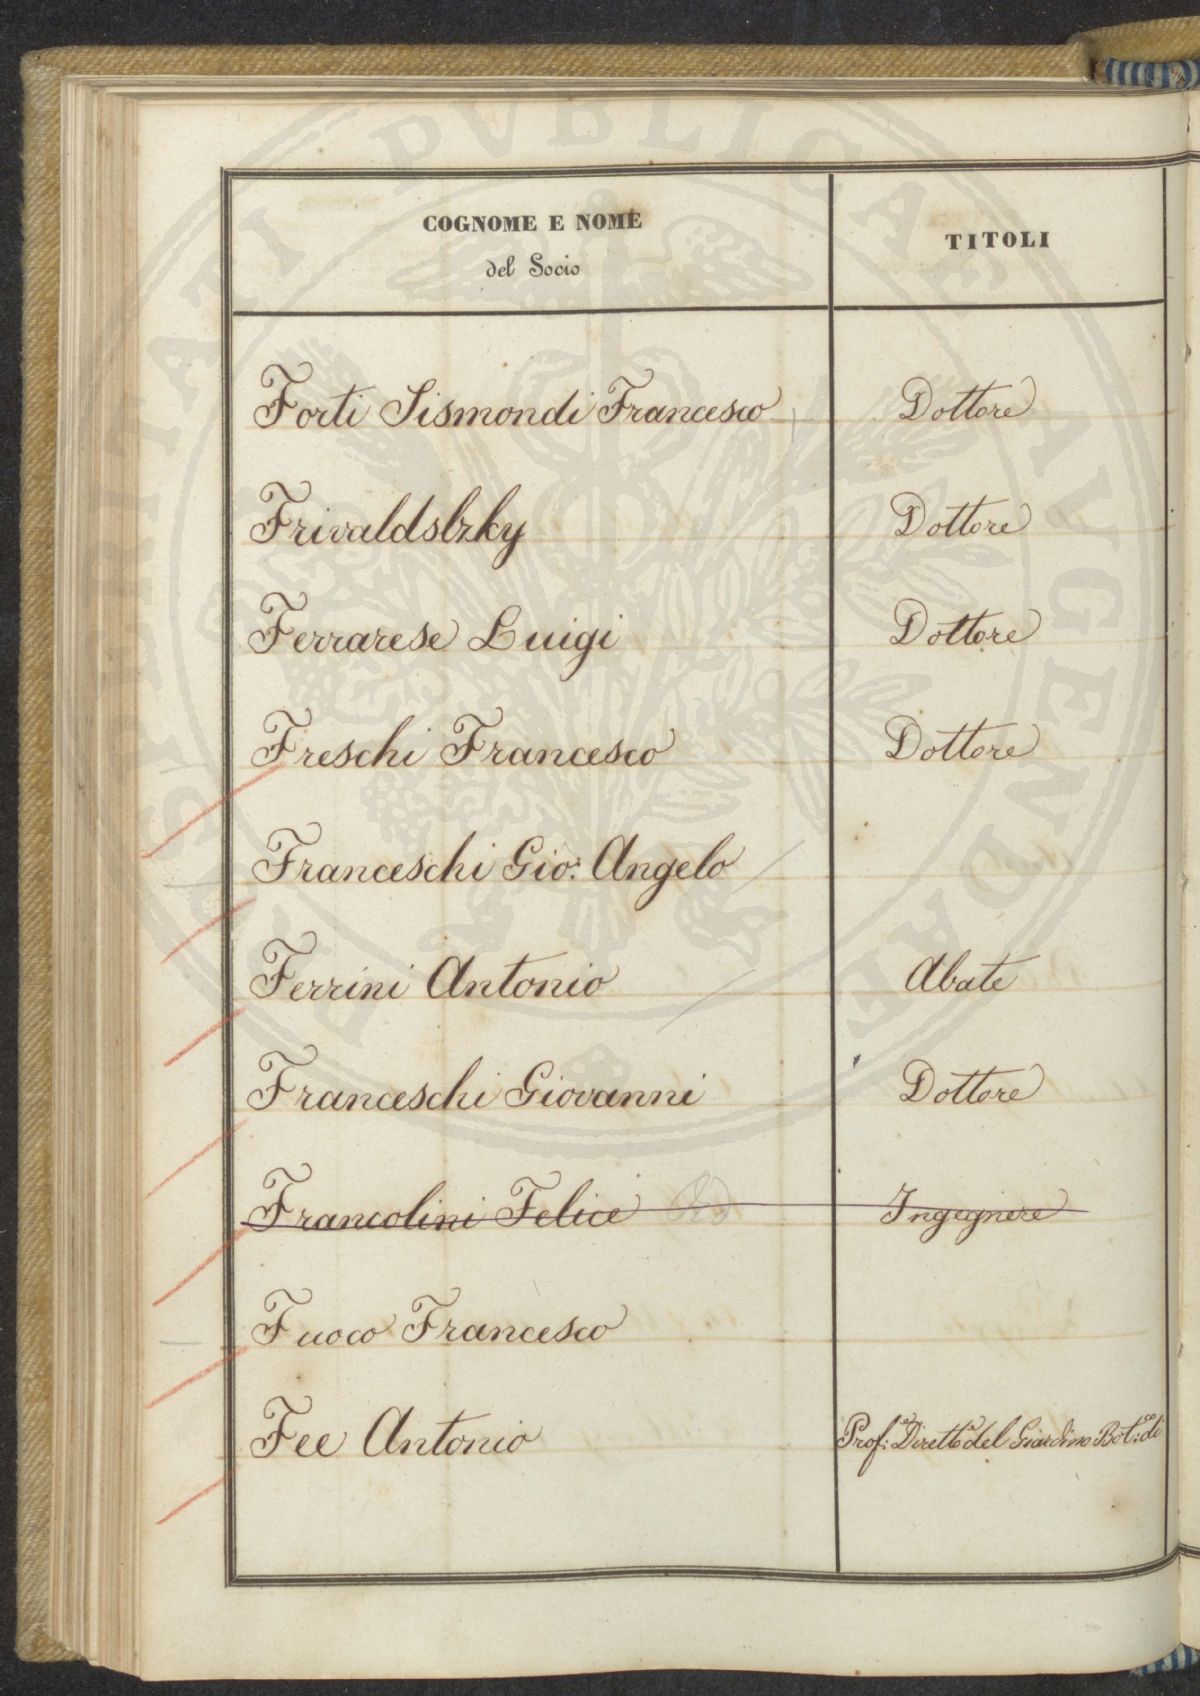 COGNOME E NOME
del Socio
TITOLI
Forti Sismondi Francesco Dottore
Frivaldslzky Dottore
Ferrarese Luigi Dottore
Freschi Francesco Dottore
Franceschi Gio: Angelo
Ferrini Antonio Abate
Franceschi Giovanni Dottore
Francolini Felice Ingegnere
Fuoco Francesco
Fee Antonio Prof: Dirett.e del Giardino Bot:co di
PROSPERITATI PVBLICAE AVGENDAE